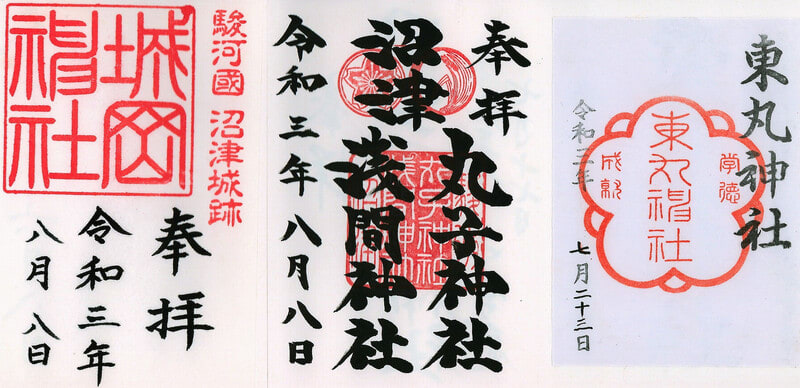 駿河國 沼津城跡
城岡神社
奉拝
令和三年
八月八日
奉拝
丸子神社
沼津
浅間神社
令和三年八月八日
東丸神社
学徳
東丸神社
成就
令和三年
七月二十三日